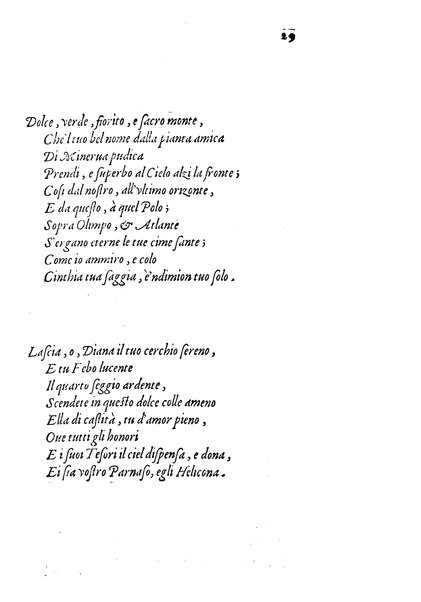 29
Dolce, verde, fiorito, e sacro monte,
Che'l tuo bel nome dalla pianta amica
Di Minerua pudica
Prendi, e superbo al Cielo alzi la fronte;
Cosi dal nostro, all'vltimo orizonte,
E da questo, à quel Polo;
Sopra Olimpo, & Atlante
S'ergano eterne le tue cime sante;
Come io ammiro, e colo
Cinthia tua saggia, e'ndimion tuo solo.
Lascia, o, Diana il tuo cerchio sereno,
E tu Febo lucente
Il quarto seggio ardente,
Scendete in questo dolce colle ameno
Ella di castità, tu d'amor pieno,
Oue tutti gli honori
E i suoi Tesori il ciel dispensa, e dona,
Ei sia vostro Parnaso, egli Helicona.